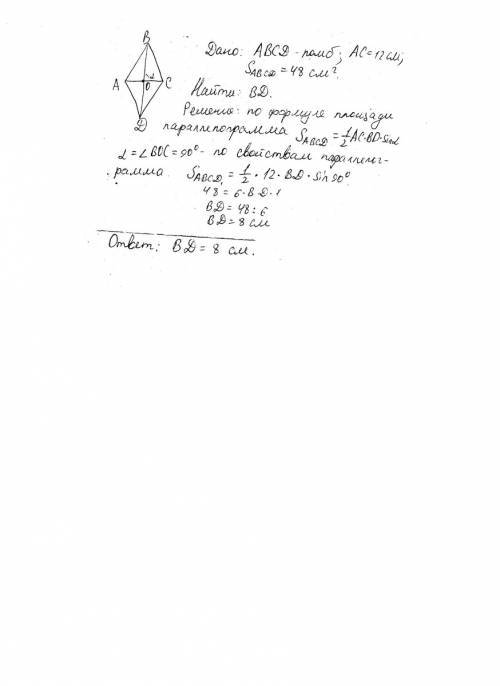 B
A
C
O
D
α
Дано: ABCD - ромб; AC=12 см;
S_ABCD = 48 см².
Найти: BD.
Решение: по формуле площади
параллелограмма S_ABCD = 1/2 AC·BD·sinα
α = ∠BOC = 90° - по свойствам параллелог-
рамма. S_ABCD = 1/2 · 12 · BD · sin 90°
48 = 6 · BD · 1
BD = 48 : 6
BD = 8 см
Ответ: BD = 8 см.